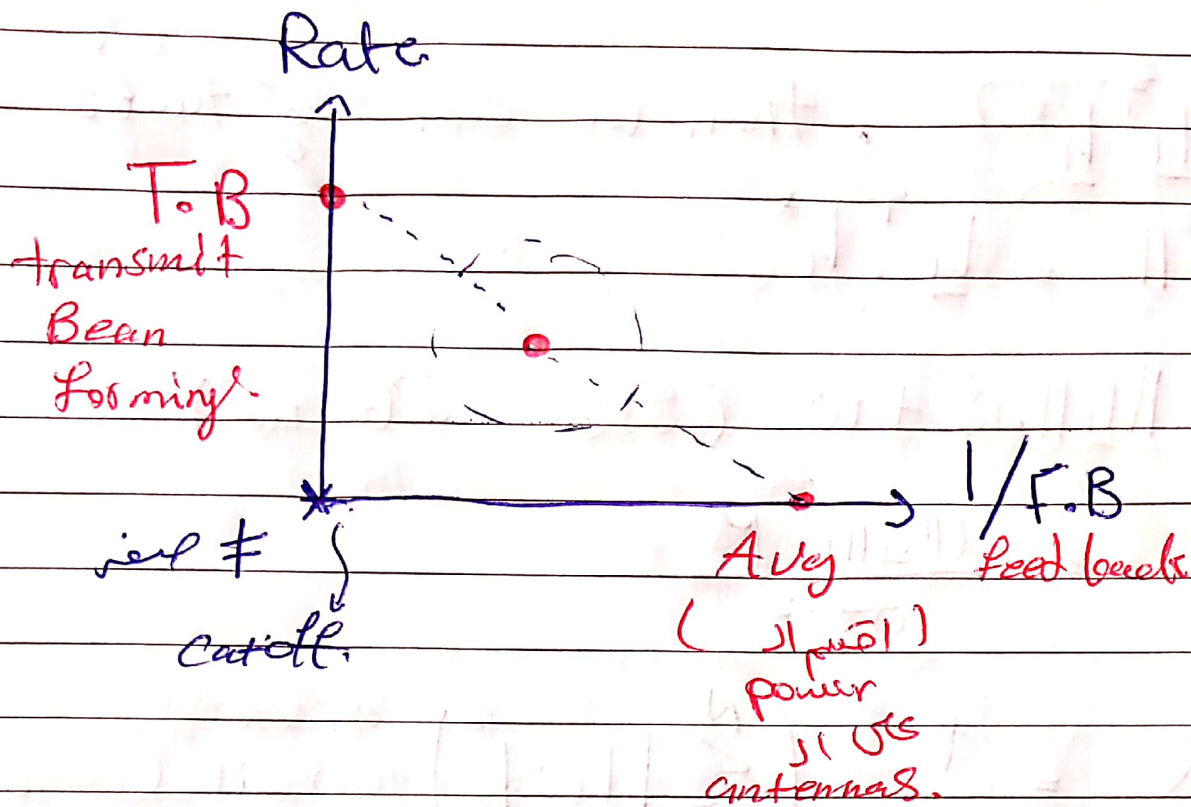 Rate
T.B
transmit
Bean
forming.
1/F.B
feed back
≠
Cutoff.
Avg
( اقسم الـ )
power
على الـ
antennas.